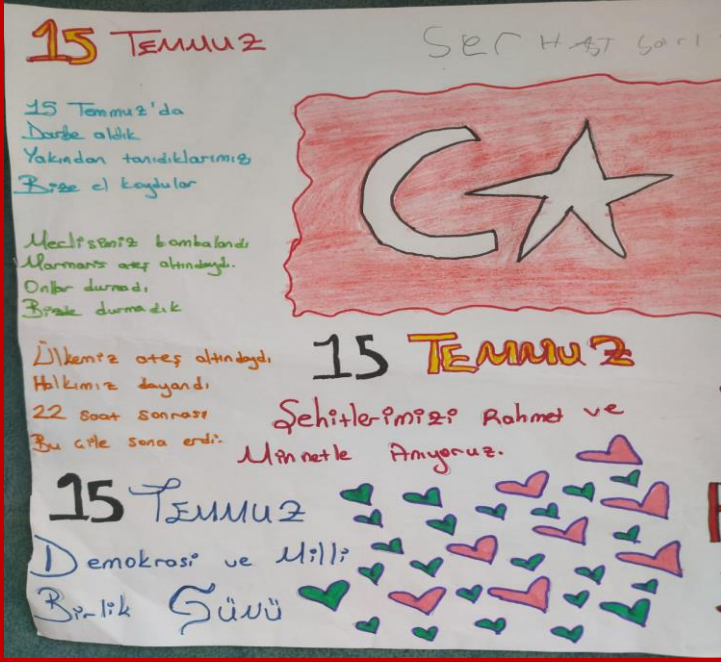 15 TEMMUZ
Serhat Sarı
15 Temmuz'da
Darbe aldık
Yakından tanıdıklarımız
Bize el koydular
Meclisimiz bombalandı
Marmaris ateş altındaydı.
Onlar durmadı,
Bizde durmadık
Ülkemiz ateş altındaydı
Halkımız dayandı,
22 saat sonrası
Bu çile sona erdi.
15 TEMMUZ
Şehitlerimizi Rahmet ve
Minnetle Anıyoruz.
15 TEMMUZ
Demokrasi ve Milli
Birlik Günü